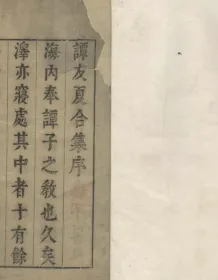 譚友夏合集序
海內奉譚子之教也久矣
澤亦寢處其中者十有餘